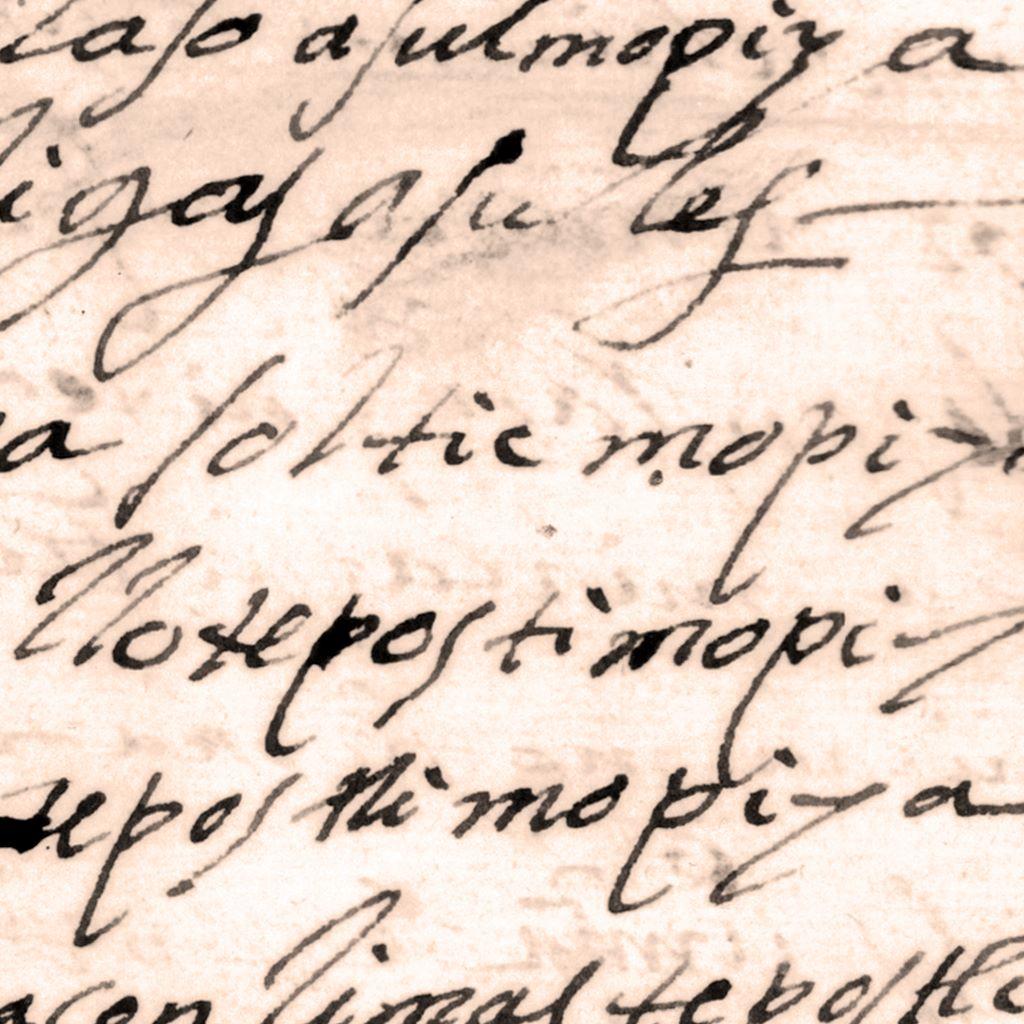 laso asulmopiz a
ligas asules
a soltic mopiz
llo tepostimopiz
tepostli mopiz a
simal tepostle